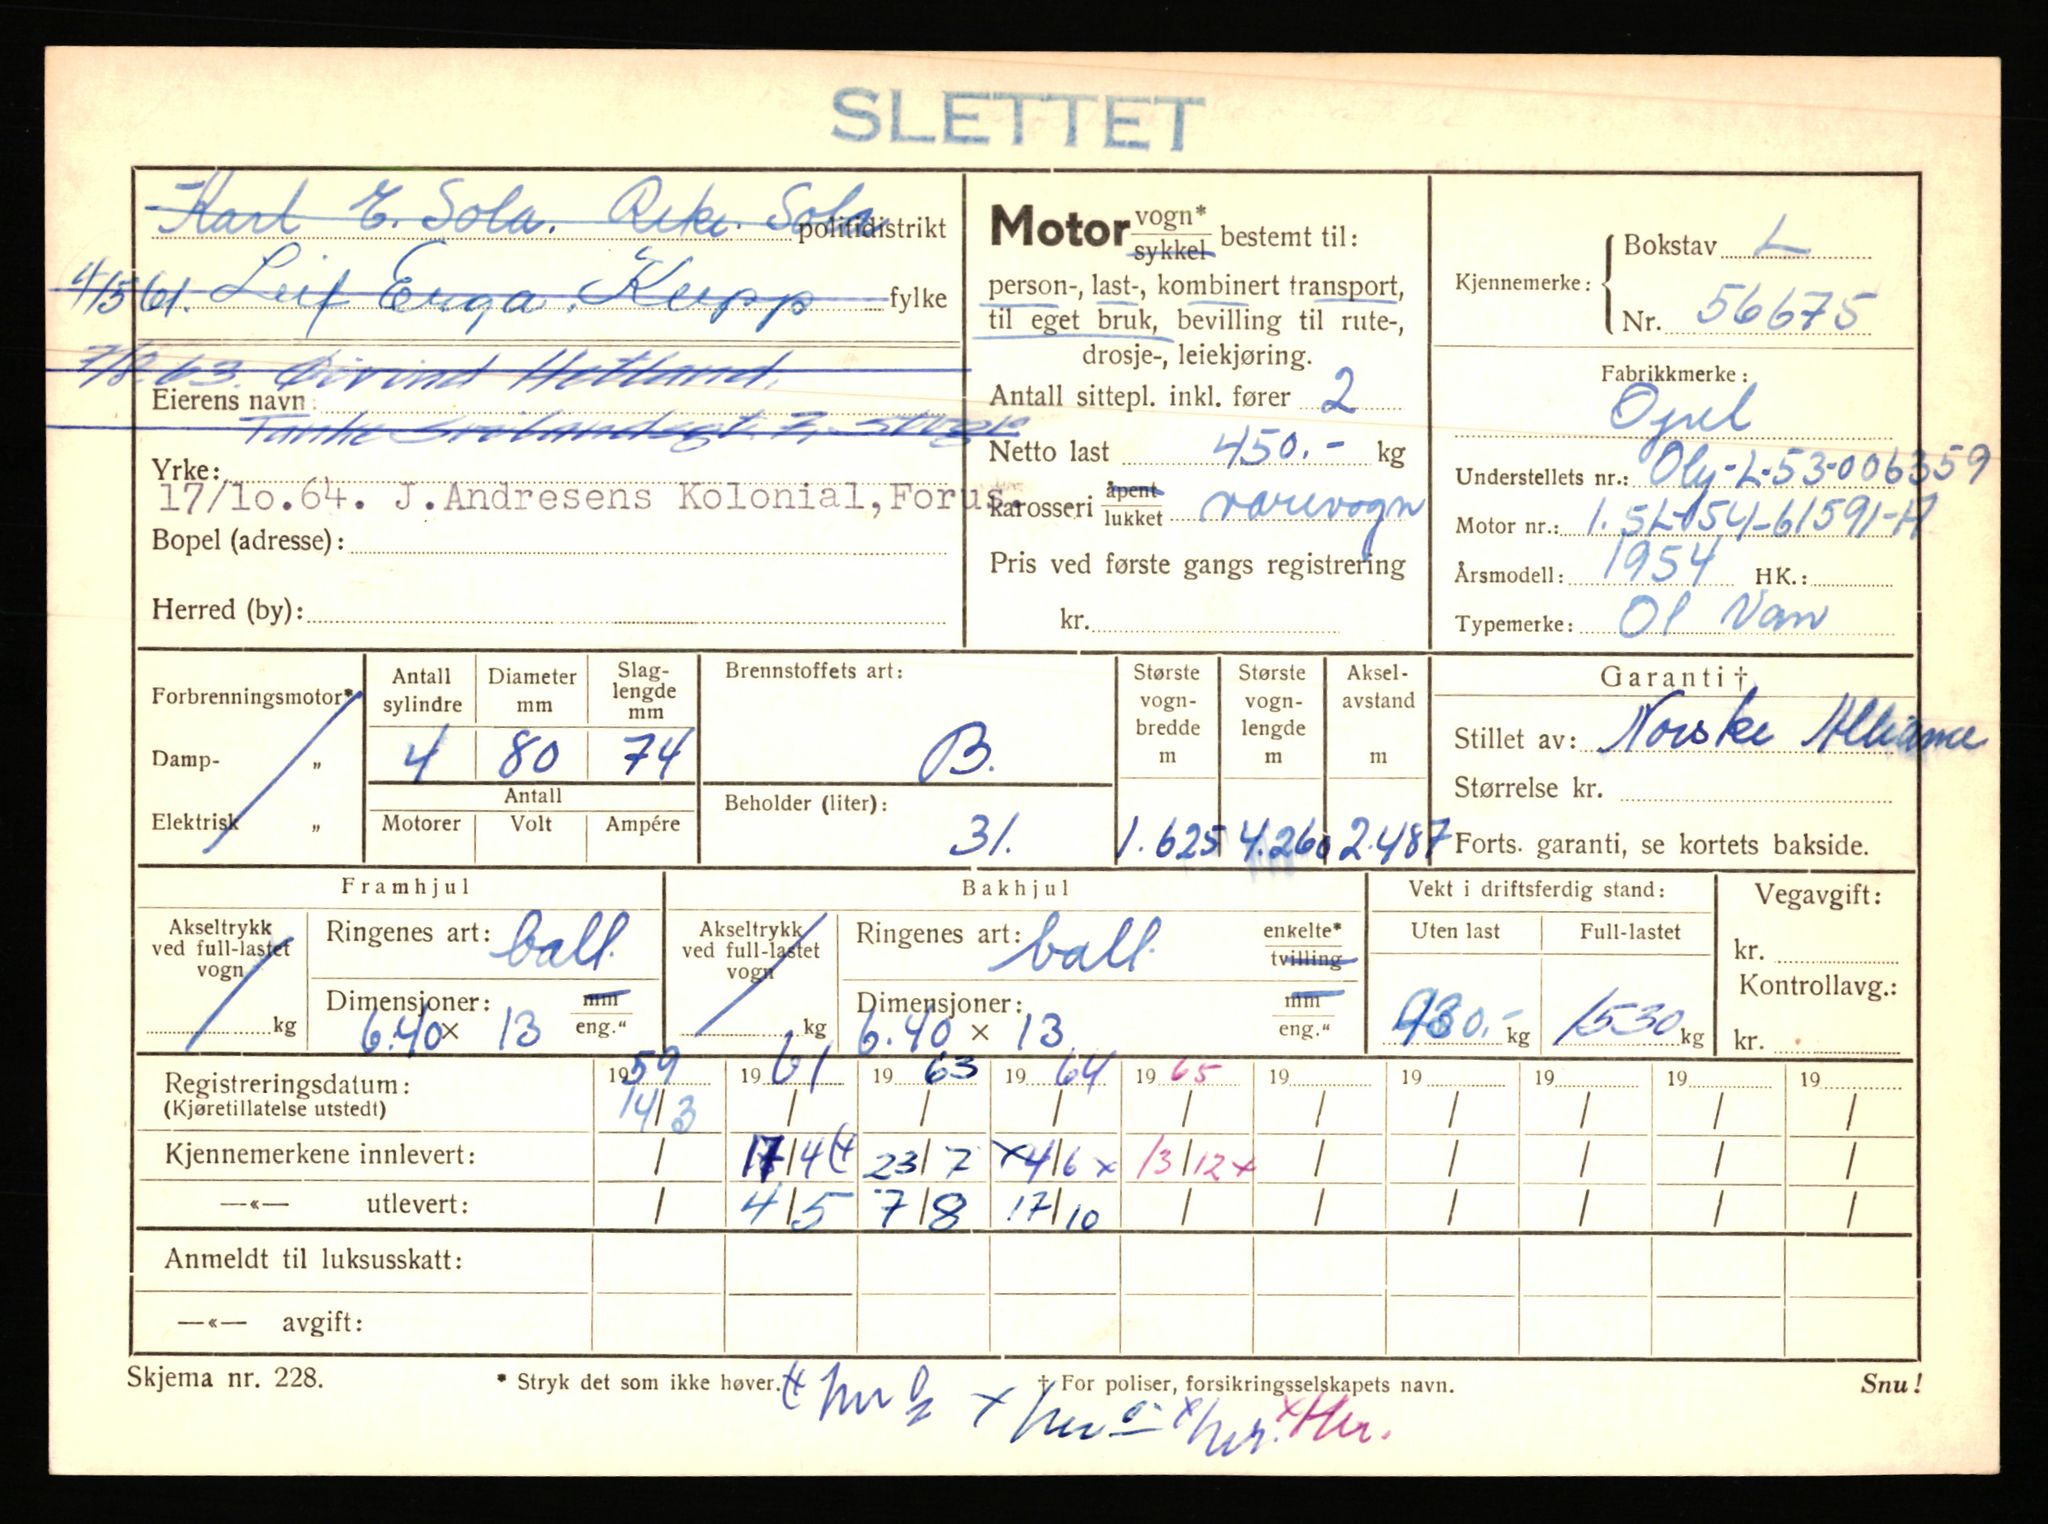 SLETTET
Karl E. Sola. Reke. Sola
politidistrikt
4/5 61. Leif Erga. Klepp
fylke
7/8.63. Øivind Hetland.
Eierens navn:
Yrke:
17/10.64. J.Andresens Kolonial,Forus.
Bopel (adresse):
Herred (by):
Motor vogn* / sykkel bestemt til:
person-, last-, kombinert transport,
til eget bruk, bevilling til rute-,
drosje-, leiekjøring.
Antall sittepl. inkl. fører 2
Netto last 450.- kg
Karosseri åpent / lukket varevogn
Pris ved første gangs registrering
kr.
Kjennemerke: Bokstav L
Nr. 56675
Fabrikkmerke:
Opel
Understellets nr.: Oly-L-53-006359
Motor nr.: 1.5L-154-61591-H
Årsmodell: 1954 HK.:
Typemerke: Ol Van
Forbrenningsmotor*
Damp- „
Elektrisk „
Antall sylindre Diameter mm Slag-lengde mm
4 80 74
Antall
Motorer Volt Ampére
Brennstoffets art:
B.
Beholder (liter):
31.
Største vogn-bredde m Største vogn-lengde m Aksel-avstand m
1.625 4.260 2.487
Garanti †
Stillet av: Norske Alliance
Størrelse kr.
Forts. garanti, se kortets bakside.
Framhjul
Akseltrykk ved full-lastet vogn
kg
Ringenes art: ball.
Dimensjoner: mm / eng."
6.40 × 13
Bakhjul
Akseltrykk ved full-lastet vogn
kg
Ringenes art: ball. enkelte* / tvilling
Dimensjoner: mm / eng."
6.40 × 13
Vekt i driftsferdig stand:
Uten last Full-lastet
930.- kg 1530 kg
Vegavgift:
kr.
Kontrollavg.:
kr.
Registreringsdatum: 1959 1961 1963 1964 1965 19 19 19 19 19
(Kjøretillatelse utstedt) 14/3 / / / / / / / / /
Kjennemerkene innlevert: / 17/4 23/7 ×4/6 × 13/12 × / / / / /
—«— utlevert: / 4/5 7/8 17/10 / / / / / /
Anmeldt til luksusskatt:
—«— avgift:
Skjema nr. 228. * Stryk det som ikke høver. † For poliser, forsikringsselskapets navn. Snu!